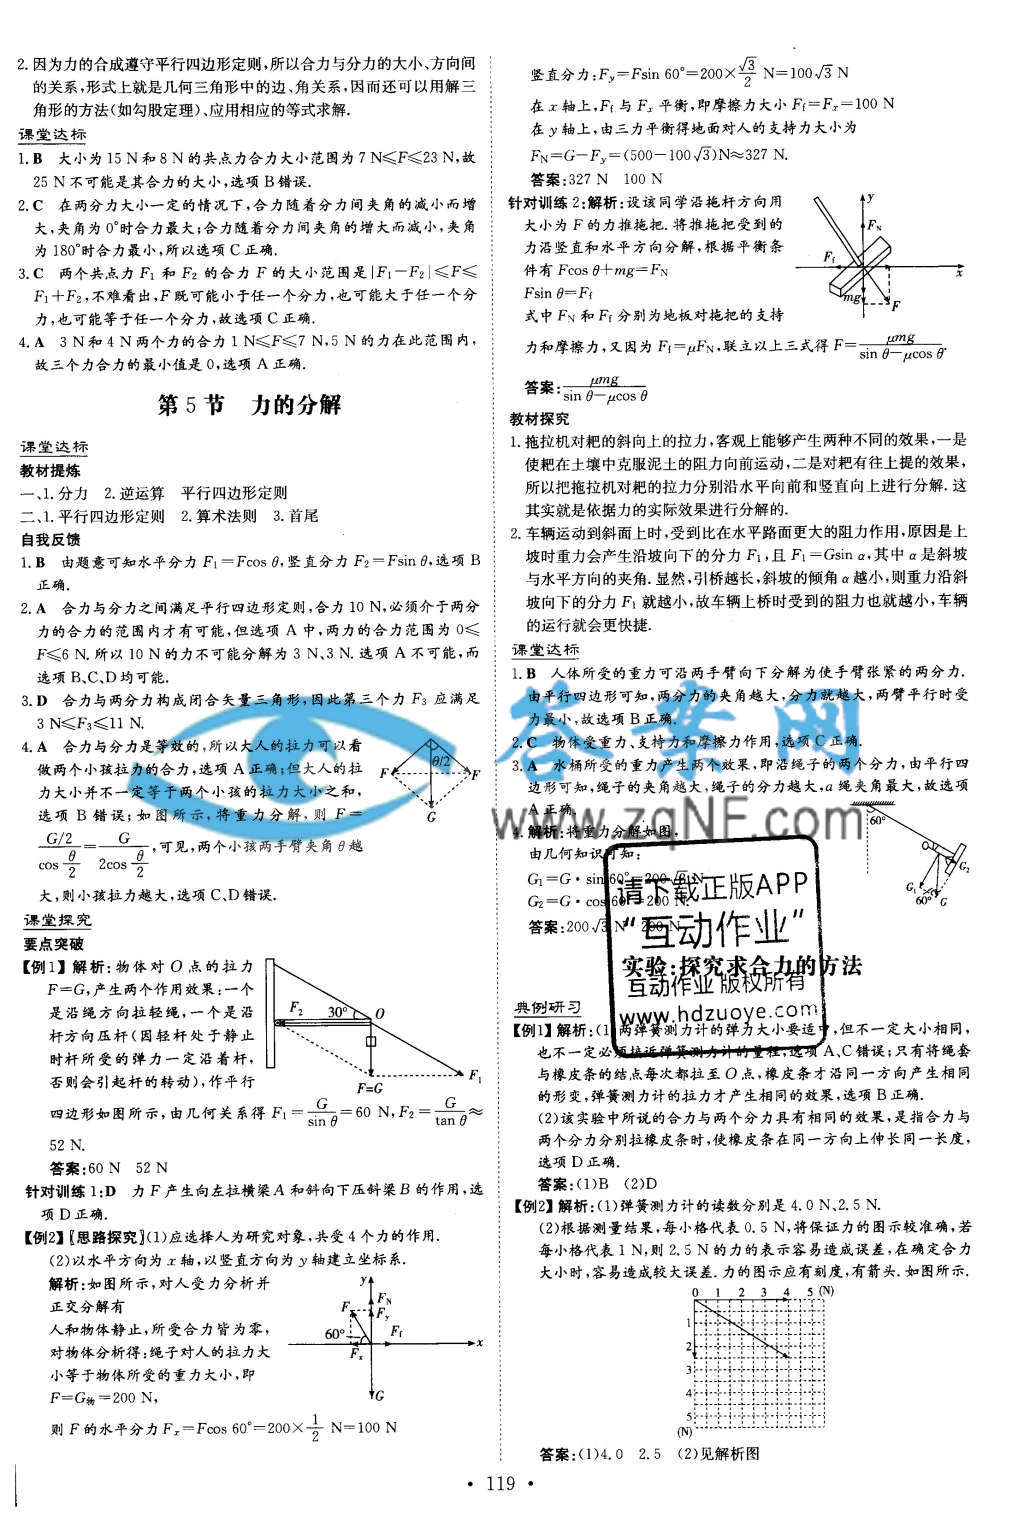 2. 因为力的合成遵守平行四边形定则,所以合力与分力的大小、方向间
的关系,形式上就是几何三角形中的边、角关系,因而还可以用解三
角形的方法(如勾股定理)、应用相应的等式求解.
课堂达标
1. B 大小为 15 N 和 8 N 的共点力合力大小范围为 7 N≤F≤23 N,故
25 N 不可能是其合力的大小,选项 B 错误.
2. C 在两分力大小一定的情况下,合力随着分力间夹角的减小而增
大,夹角为 0°时合力最大;合力随着分力间夹角的增大而减小,夹角
为 180°时合力最小,所以选项 C 正确.
3. C 两个共点力 F₁ 和 F₂ 的合力 F 的大小范围是|F₁-F₂|≤F≤
F₁+F₂,不难看出,F 既可能小于任一个分力,也可能大于任一个分
力,也可能等于任一个分力,故选项 C 正确.
4. A 3 N 和 4 N 两个力的合力 1 N≤F≤7 N,5 N 的力在此范围内,
故三个力合力的最小值是 0,选项 A 正确.
第 5 节 力的分解
课堂达标
教材提炼
一、1. 分力 2. 逆运算 平行四边形定则
二、1. 平行四边形定则 2. 算术法则 3. 首尾
自我反馈
1. B 由题意可知水平分力 F₁=Fcos θ,竖直分力 F₂=Fsin θ,选项 B
正确.
2. A 合力与分力之间满足平行四边形定则,合力 10 N,必须介于两分
力的合力的范围内才有可能,但选项 A 中,两力的合力范围为 0≤
F≤6 N. 所以 10 N 的力不可能分解为 3 N、3 N. 选项 A 不可能,而
选项 B、C、D 均可能.
3. D 合力与两分力构成闭合矢量三角形,因此第三个力 F₃ 应满足
3 N≤F₃≤11 N.
4. A 合力与分力是等效的,所以大人的拉力可以看
做两个小孩拉力的合力,选项 A 正确;但大人的拉
力大小并不一定等于两个小孩的拉力大小之和,
选项 B 错误;如图所示,将重力分解,则 F=
(G/2)/(cos θ/2)=G/(2cos θ/2),可见,两个小孩两手臂夹角 θ 越
大,则小孩拉力越大,选项 C、D 错误.
θ/2
F F
G
课堂探究
要点突破
【例1】解析:物体对 O 点的拉力
F=G,产生两个作用效果:一个
是沿绳方向拉轻绳,一个是沿
杆方向压杆(因轻杆处于静止
时杆所受的弹力一定沿着杆,
否则会引起杆的转动),作平行
四边形如图所示,由几何关系得 F₁=G/sin θ=60 N,F₂=G/tan θ≈
52 N.
F₂ 30° O
F₁
F=G
答案:60 N 52 N
针对训练 1:D 力 F 产生向左拉横梁 A 和斜向下压斜梁 B 的作用,选
项 D 正确.
【例2】[思路探究](1)应选择人为研究对象,共受 4 个力的作用.
(2)以水平方向为 x 轴,以竖直方向为 y 轴建立坐标系.
解析:如图所示,对人受力分析并
正交分解有
人和物体静止,所受合力皆为零,
对物体分析得:绳子对人的拉力大
小等于物体所受的重力大小,即
F=G物=200 N,
y
F_N
F F_y
60° F_f
F_x x
G
则 F 的水平分力 Fₓ=Fcos 60°=200×1/2 N=100 N
竖直分力:F_y=Fsin 60°=200×√3/2 N=100√3 N
在 x 轴上,F_f 与 Fₓ 平衡,即摩擦力大小 F_f=Fₓ=100 N
在 y 轴上,由三力平衡得地面对人的支持力大小为
F_N=G-F_y=(500-100√3)N≈327 N.
答案:327 N 100 N
针对训练 2:解析:设该同学沿拖杆方向用
大小为 F 的力推拖把. 将推拖把受到的
力沿竖直和水平方向分解,根据平衡条
件有 Fcos θ+mg=F_N
Fsin θ=F_f
式中 F_N 和 F_f 分别为地板对拖把的支持
力和摩擦力,又因为 F_f=μF_N,联立以上三式得 F=μmg/(sin θ-μcos θ).
y
F_N
F_f
x
mg F
答案:μmg/(sin θ-μcos θ)
教材探究
1. 拖拉机对耙的斜向上的拉力,客观上能够产生两种不同的效果,一是
使耙在土壤中克服泥土的阻力向前运动,二是对耙有往上提的效果,
所以把拖拉机对耙的拉力分别沿水平向前和竖直向上进行分解. 这
其实就是依据力的实际效果进行分解的.
2. 车辆运动到斜面上时,受到比在水平路面更大的阻力作用,原因是上
坡时重力会产生沿坡向下的分力 F₁,且 F₁=Gsin α,其中 α 是斜坡
与水平方向的夹角. 显然,引桥越长,斜坡的倾角 α 越小,则重力沿斜
坡向下的分力 F₁ 就越小,故车辆上桥时受到的阻力也就越小,车辆
的运行就会更快捷.
课堂达标
1. B 人体所受的重力可沿两手臂向下分解为使手臂张紧的两分力.
由平行四边形可知,两分力的夹角越大,分力就越大,两臂平行时受
力最小,故选项 B 正确.
2. C 物体受重力、支持力和摩擦力作用,选项 C 正确.
3. A 水桶所受的重力产生两个效果,即沿绳子的两个分力,由平行四
边形可知,绳子的夹角越大,绳子的分力越大,a 绳夹角最大,故选项
A 正确.
4. 解析:将重力分解如图,
由几何知识可知:
G₁=G·sin 60°=200√3 N
G₂=G·cos 60°=200 N.
答案:200√3 N 200 N
60°
G₂
G₁
60° G
实验:探究求合力的方法
典例研习
【例1】解析:(1)两弹簧测力计的弹力大小要适中,但不一定大小相同,
也不一定必须接近弹簧测力计的量程,选项 A、C 错误;只有将绳套
与橡皮条的结点每次都拉至 O 点,橡皮条才沿同一方向产生相同
的形变,弹簧测力计的拉力才产生相同的效果,选项 B 正确.
(2)该实验中所说的合力与两个分力具有相同的效果,是指合力与
两个分力分别拉橡皮条时,使橡皮条在同一方向上伸长同一长度,
选项 D 正确.
答案:(1)B (2)D
【例2】解析:(1)弹簧测力计的读数分别是 4.0 N、2.5 N.
(2)根据测量结果,每小格代表 0.5 N,将保证力的图示较准确,若
每小格代表 1 N,则 2.5 N 的力的表示容易造成误差,在确定合力
大小时,容易造成较大误差. 力的图示应有刻度,有箭头. 如图所示.
0 1 2 3 4 5 (N)
1
2
3
4
5
(N)
答案:(1)4.0 2.5 (2)见解析图
答案网
www.zqNF.com
请下载正版APP
“互动作业”
互动作业 版权所有
www.hdzuoye.com
• 119 •